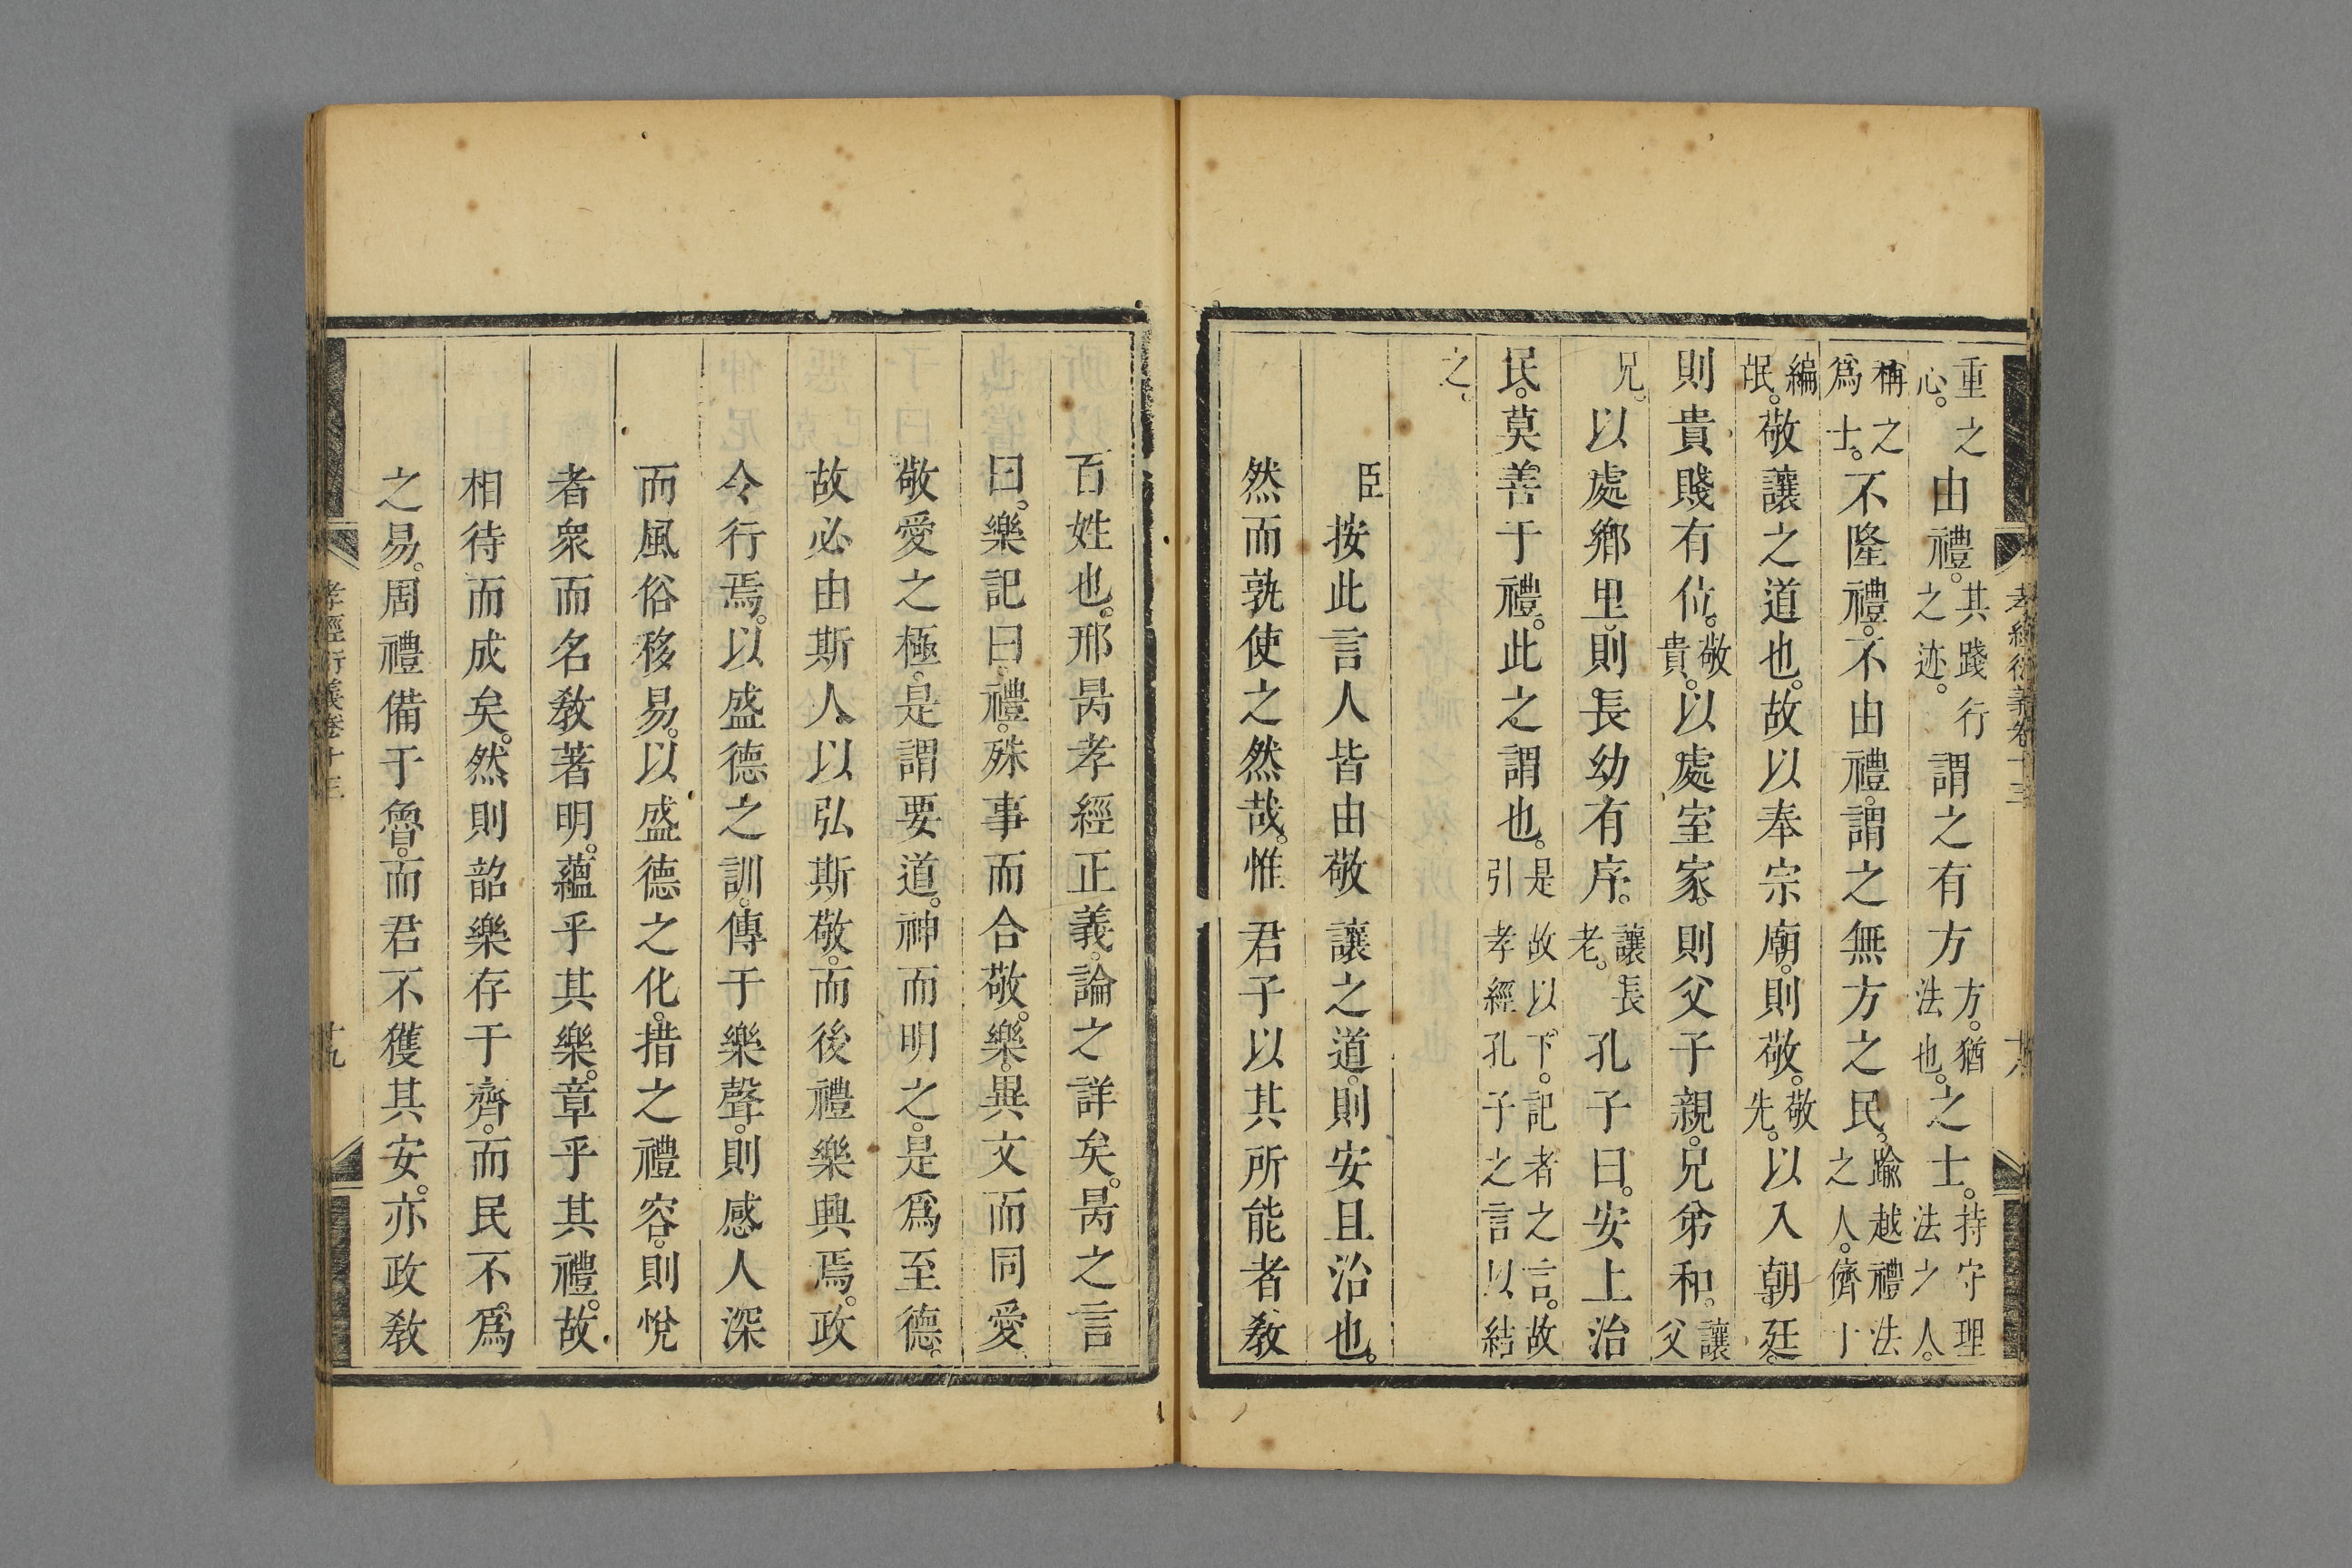 重之心。由禮。其踐行之迹。謂之有方方。猶法也。之士。持守理法之人。
稱之爲士。不隆禮。不由禮。謂之無方之民。踰越禮法之人。儕于
編氓。敬讓之道也。故以奉宗廟。則敬。敬先。以入朝廷。
則貴賤有位。敬貴。以處室家。則父子親。兄弟和。讓父
兄。以處鄉里。則長幼有序。讓長老。孔子曰。安上治
民。莫善于禮。此之謂也。是故以下。記者之言。故引孝經孔子之言以結
之。
臣按此言人皆由敬讓之道。則安且治也。
然而孰使之然哉。惟君子以其所能者教
孝經衍義卷十三
十八
百姓也。邢昺孝經正義。論之詳矣。昺之言
曰。樂記曰。禮。殊事而合敬。樂。異文而同愛。
敬愛之極。是謂要道。神而明之。是爲至德。
故必由斯人以弘斯敬。而後禮樂興焉。政
令行焉。以盛德之訓。傳于樂聲。則感人深
而風俗移易。以盛德之化。措之禮容。則悅
者衆而名教著明。蘊乎其樂。章乎其禮。故
相待而成矣。然則韶樂存于齊。而民不爲
之易。周禮備于魯。而君不獲其安。亦政教
孝經衍義卷十三
十九